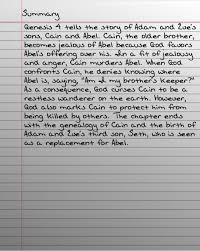 Summary
Genesis 4 tells the story of Adam and Eve's
sons, Cain and Abel. Cain, the older brother,
becomes jealous of Abel because God favors
Abel's offering over his. In a fit of jealousy
and anger, Cain murders Abel. When God
confronts Cain, he denies knowing where
Abel is, saying, "Am I my brother's keeper?"
As a consequence, God curses Cain to be a
restless wanderer on the earth. However,
God also marks Cain to protect him from
being killed by others. The chapter ends
with the genealogy of Cain and the birth of
Adam and Eve's third son, Seth, who is seen
as a replacement for Abel.